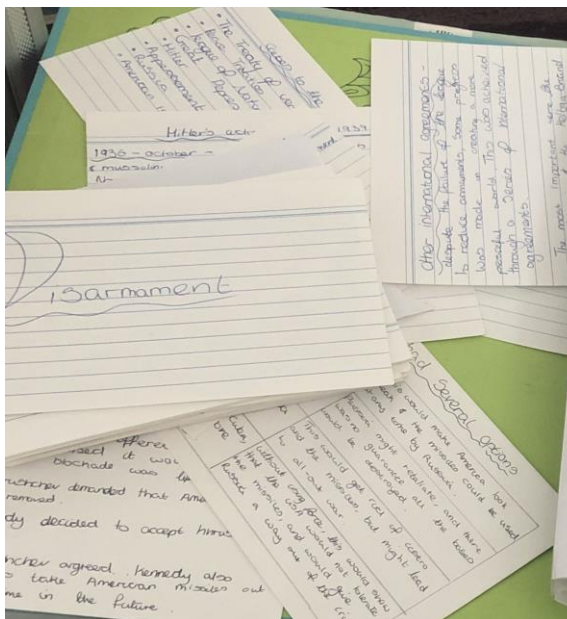 causes to the
• The Treaty of
• Peace Treaties
• League of Nat
• Great Depress
• Hitler
• Appeasement
• Russia
• American
Hitler's act
1936 - october -
& mussolin
1939
Other international agreements -
despite the failure of the league
to reduce armaments. Some progress
was made in creating a more
peaceful world. This was acheived
through a series of international
agreements.
The most important were the
Disarmament
had Several options
would make America look
weak & the missiles could be used
at any time by Russia.
Russia might retaliate, and there
was no guarantee all the bases
would be destroyed.
This would get rid of castro
and the missiles, but might lead
to all out war.
without using force, this would show
that the USA would not tolerate
the missiles and would give
Russia a way out of the cri
Cuba,
the
offerer
used it was
blockade was
ruschev demanded that Ame
removed.
dy decided to accept hrus
chev argreed. Kennedy also
to take American missiles out
me in the future.